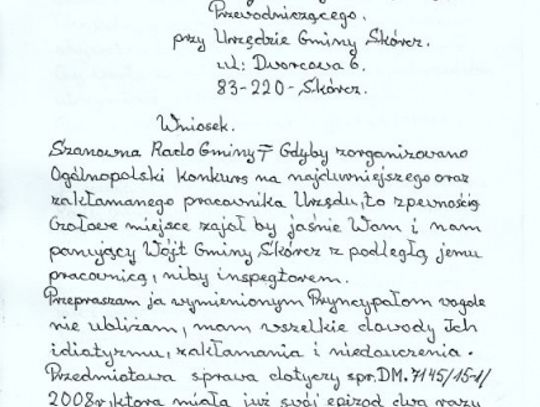 Przewodniczącego.
przy Urzędzie Gminy Skórcz.
ul: Dworcowa 6.
83-220-Skórcz.
Wniosek.
Szanowna Rado Gminy Gdyby zorganizowano
Ogólnopolski konkurs na najdurniejszego oraz
zakłamanego pracownika Urzędu, to z pewnością
czołowe miejsce zajął by jaśnie Wam i nam
panujący Wójt Gminy Skórcz z podległą jemu
pracownicą, niby inspegtorem.
Przepraszam ja wymienionym Pryncypałom wogóle
nie ubliżam, mam wszelkie dowody Ich
idiotyzmu, zakłamania i niedouczenia.
Przedmiotowa sprawa dotyczy spr.DM.7145/15-1/
2008r, która miała już swój epizod dwa razy